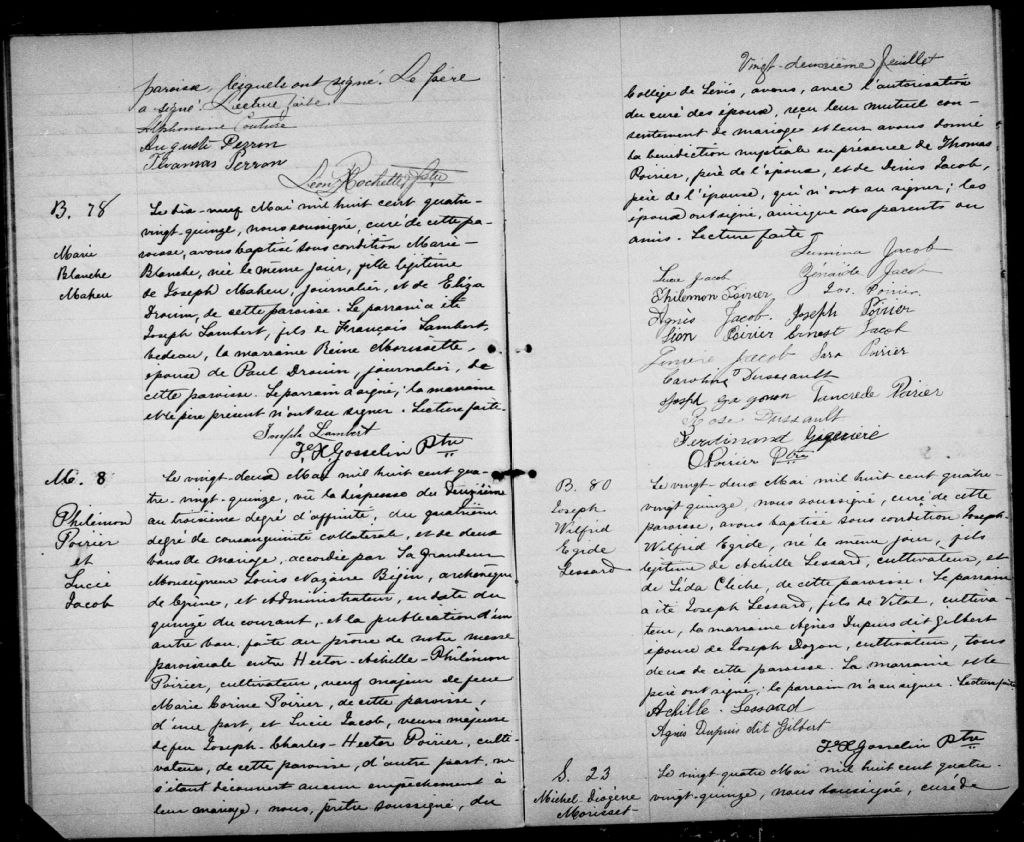 paroisse, lesquels ont signé. Le père
a signé. Lecture faite.
Alphonsine Couture
Auguste Perron
Perron
Léon Rochette, Ptre
B. 78
Marie
Blanche
Maheu
Le dix-neuf Mai mil huit cent quatre-
vingt-quinze, nous soussigné, curé de cette pa-
roisse, avons baptisé sous condition Marie-
Blanche, née le même jour, fille légitime
de Joseph Maheu, journalier, et de Eliza
Drouin, de cette paroisse. Le parrain a été
Joseph Lambert, fils de François Lambert,
bedeau, la marraine Reine Morissette,
épouse de Paul Drouin, journalier, de
cette paroisse. Le parrain a signé; la marraine
et le père présent n'ont su signer. Lecture faite.
Joseph Lambert
F. X. Gosselin Ptre
M. 8
Philémon
Poirier
et
Lucie
Jacob
Le vingt-deux Mai mil huit cent qua-
tre-vingt-quinze, vu la dispense du deuxième
au troisième degré d'affinité, du quatrième
degré de consanguinité collatérale, et de deux
bans de mariage, accordée par Sa Grandeur
Monseigneur Louis Nazaire Bégin, archevêque
de Cyrène, et Administrateur, en date du
quinze du courant, et la publication d'un
autre ban, faite au prône de notre messe
paroissiale entre Hector-Achille-Philémon
Poirier, cultivateur, veuf majeur de feue
Marie Corine Poirier, de cette paroisse,
d'une part, et Lucie Jacob, veuve majeure
de feu Joseph-Charles-Hector Poirier, culti-
vateur, de cette paroisse, d'autre part, ne
s'étant découvert aucun empêchement à
leur mariage, nous, prêtre soussigné, du
Vingt-deuxième feuillet
Collège de Lévis, avons, avec l'autorisation
du curé des époux, reçu leur mutuel con-
sentement de mariage et leur avons donné
la bénédiction nuptiale en présence de Thomas
Poirier, père de l'époux, et de Denis Jacob,
père de l'épouse, qui n'ont su signer; les
époux ont signé, ainsi que des parents ou
amis. Lecture faite.
Lumina Jacob
Lucie Jacob Zénaïde Jacob
Philemon Poirier Jos. Poirier
Agnès Jacob. Joseph Poirier
Léon Poirier Ernest Jacob
Jacob Sara Poirier
Caroline Dussault
Joseph Gagnon Tancrède Poirier
Rose Dussault
Ferdinand
O. Poirier Ptre
B. 80
Joseph
Wilfrid
Egide
Lessard
Le vingt-deux Mai mil huit cent quatre-
vingt-quinze, nous soussigné, curé de cette
paroisse, avons baptisé sous condition Joseph-
Wilfrid Egide, né le même jour, fils
légitime de Achille Lessard, cultivateur, et
de Léda Cliche, de cette paroisse. Le parrain
a été Joseph Lessard, fils de Vital, cultiva-
teur, la marraine Agnès Dupuis dit Gilbert
épouse de Joseph Doyon, cultivateur, tous
deux de cette paroisse. La marraine et le
père ont signé; le parrain n'a su signer. Lecture faite
Achille. Lessard
Agnès Dupuis dit Gilbert
F. X. Gosselin Ptre
S. 23
Michel-Diogène
Morisset-
Le vingt-quatre Mai mil huit cent quatre-
vingt-quinze, nous soussigné, curé de